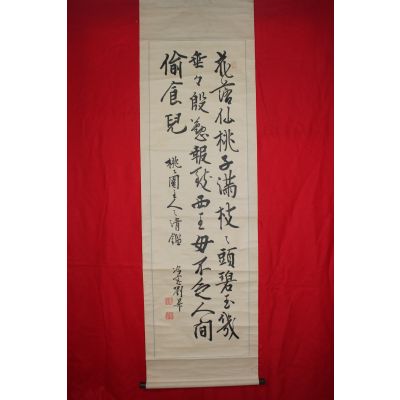 花落仙桃子满枝〻頭碧玉幾
垂〻殷懃報致西王母不乏人间
偷食兒
桃園主人清鑑
劉